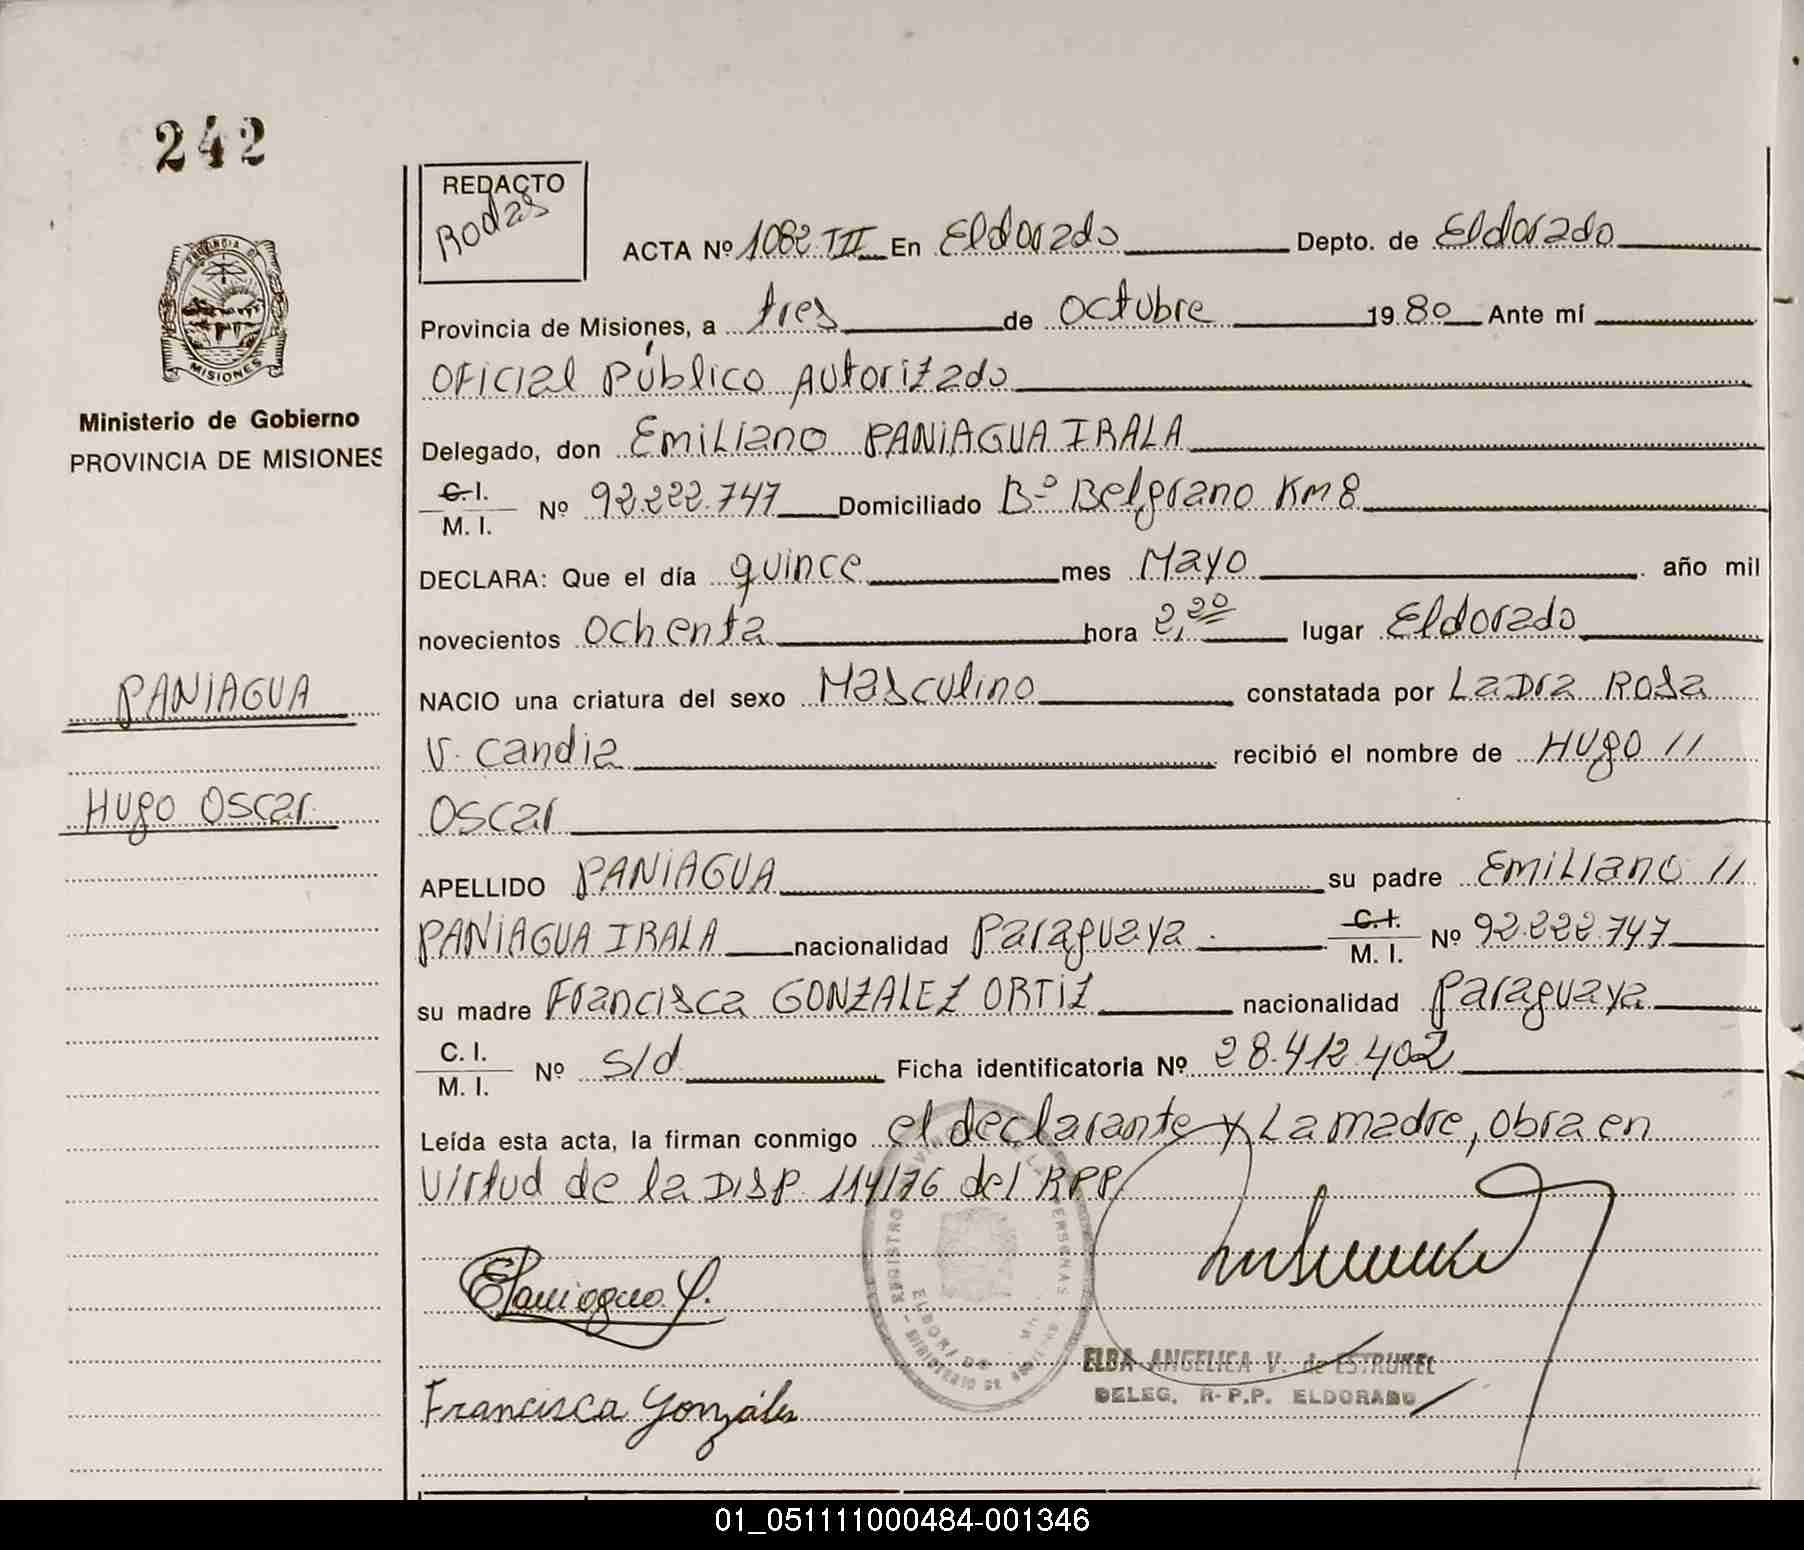 242
REDACTO
Rodas
ACTA Nº 1082 TII En Eldorado Depto. de Eldorado
Provincia de Misiones, a tres de Octubre 1980 Ante mí
Oficial Público Autorizado
PROVINCIA DE
MISIONES
Ministerio de Gobierno
PROVINCIA DE MISIONES
Delegado, don Emiliano PANIAGUA IRALA
C.I.
M. I. Nº 92.222.747 Domiciliado Bº Belgrano Km 8
DECLARA: Que el día quince mes Mayo año mil
novecientos Ochenta hora 2,20 lugar Eldorado
PANIAGUA
NACIO una criatura del sexo Masculino constatada por La Dra Rosa
V. Candia recibió el nombre de Hugo //
Hugo Oscar
Oscar
APELLIDO PANIAGUA su padre Emiliano //
PANIAGUA IRALA nacionalidad Paraguaya C.I.
M. I. Nº 92.222.747
su madre Francisca GONZALEZ ORTIZ nacionalidad Paraguaya
C. I.
M. I. Nº s/d Ficha identificatoria Nº 28.412.402
Leída esta acta, la firman conmigo el declarante y La madre, obra en
virtud de la Disp. 114/76 del RPP
EPaniagua Y.
REGISTRO DE LAS PERSONAS
ELDORADO
MINISTERIO DE
ELBA ANGELICA V. de ESTRUKEL
DELEG. R-P.P. ELDORADO
Francisca González
01_051111000484-001346